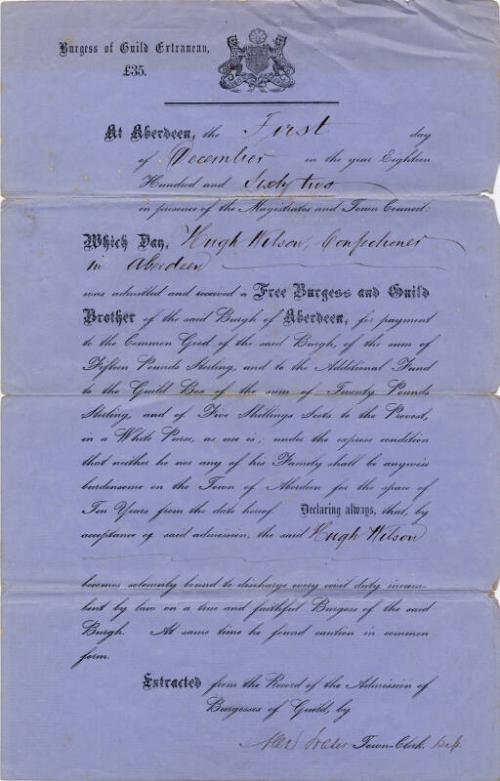 Burgess of Guild Extranean,
£35.
At Aberdeen, the First day
of December in the year Eighteen
Hundred and Sixty two
in presence of the Magistrates and Town Council:
Which Day, Hugh Wilson, Confectioner
in Aberdeen
was admitted and received a Free Burgess and Guild
Brother of the said Burgh of Aberdeen, for payment
to the Common Good of the said Burgh, of the sum of
Fifteen Pounds Sterling, and to the Additional Fund
to the Guild Box of the sum of Twenty Pounds
Sterling, and of Five Shillings Scots to the Provost,
in a White Purse, as use is; under the express condition
that neither he nor any of his Family shall be anywise
burdensome on the Town of Aberdeen for the space of
Ten Years from the date hereof. Declaring always, that, by
acceptance of said admission, the said Hugh Wilson
becomes solemnly bound to discharge every civil duty incum-
bent by law on a true and faithful Burgess of the said
Burgh. At same time he found caution in common
form.
Extracted from the Record of the Admission of
Burgesses of Guild, by
Town-Clerk. Dep.